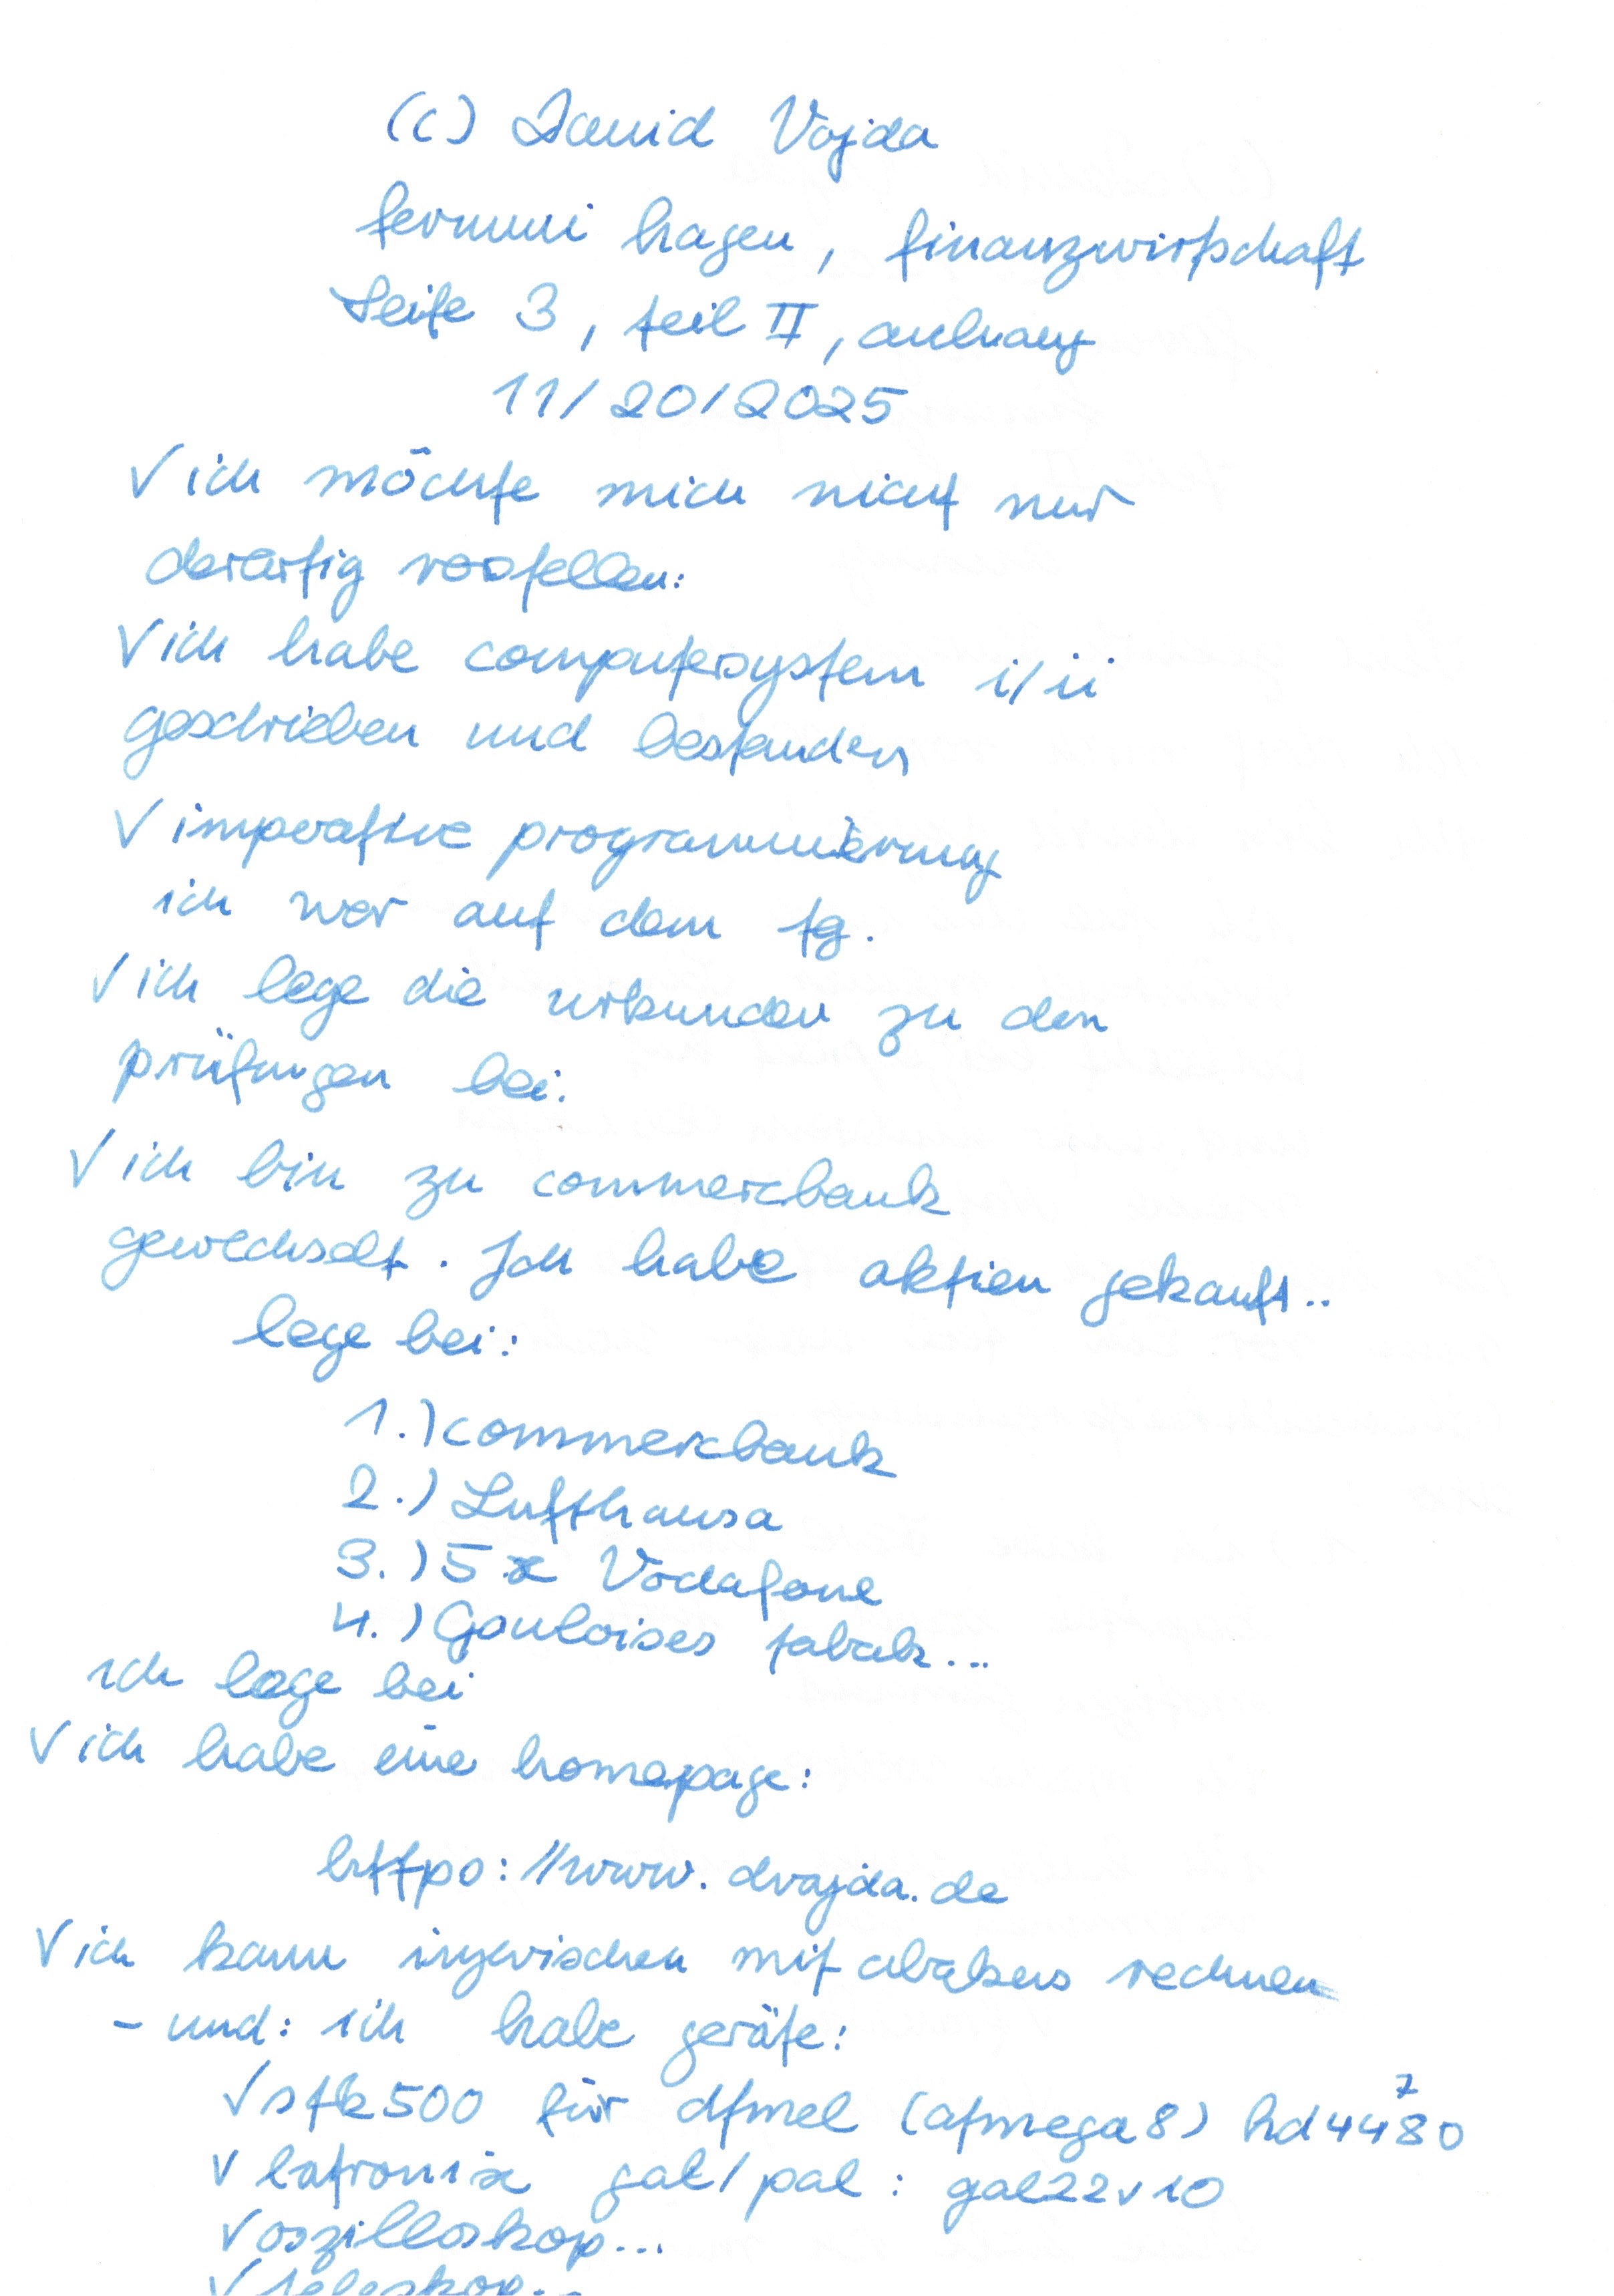 (c) David Vajda
fernuni hagen, finanzwirtschaft
Seite 3, teil II, anhang
11/20/2025
√ ich möchte mich nicht nur
derartig vorstellen:
√ ich habe computersystem i/ii
geschrieben und bestanden
√ imperative programmierung
ich war auf dem tg.
√ ich lege die urkunden zu den
prüfungen bei.
√ ich bin zu commerzbank
gewechselt. Ich habe aktien gekauft..
lege bei:
1.) commerzbank
2.) Lufthansa
3.) 5 x Vodafone
4.) Gauloises tabak...
ich lege bei
√ ich habe eine homepage:
https://www.dvajda.de
√ ich kann inzwischen mit abakus rechnen
- und: ich habe geräte:
√ stk500 für atmel (atmega8) hd44780
√ latronix gal/pal: gal22v10
√ oszilloskop...
√ teleskop...